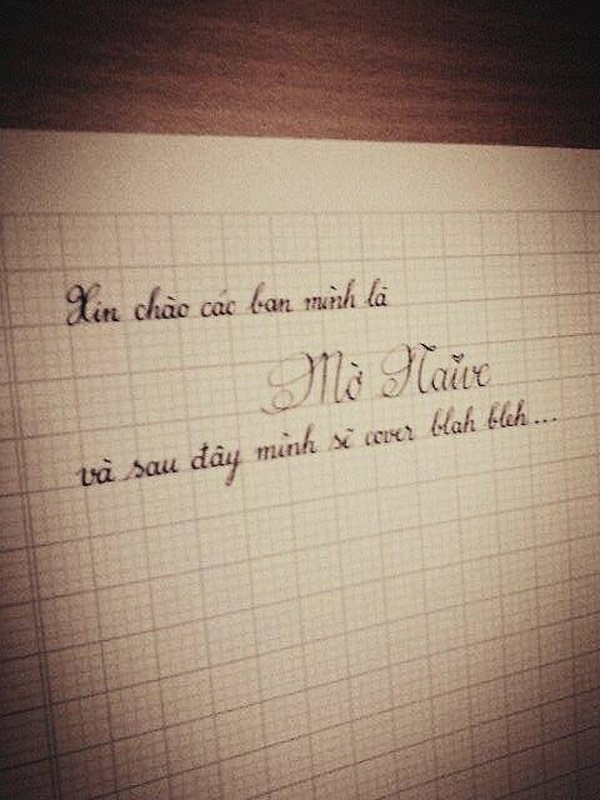 Xin chào các bạn mình là
Mờ Naïve
và sau đây mình sẽ cover blah bleh...